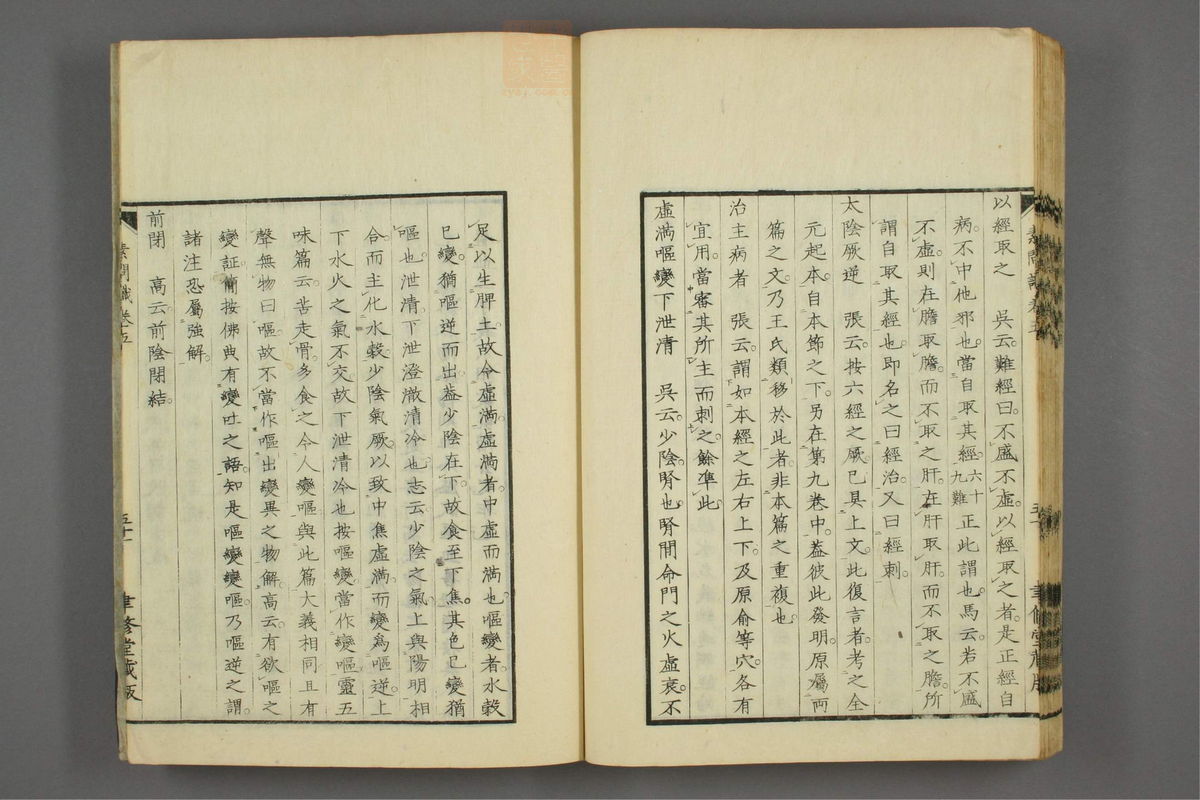 以經取之　吳云。難經曰。不盛不虛。以經取之者。是正經自
病。不中他邪也。當自取其經。六十九難正此謂也。馬云。若不盛
不虛。則在膽取膽。而不取之肝。在肝取肝。而不取之膽。所
謂自取其經也。即名之曰經治。又曰經刺。
太陰厥逆　張云。按六經之厥。已具上文。此復言者。考之全
元起本。自本節之下。另在第九卷中。蓋彼此發明。原屬兩
篇之文。乃王氏類移於此者。非本篇之重複也。
治主病者　張云。謂如本經之左右上下。及原俞等穴。各有
宜用。當審其所主而刺之。餘準此。
虛滿嘔變下泄清　吳云。少陰腎也。腎間命門之火虛衰。不
足以生脾土。故令虛滿。虛滿者。中虛而滿也。嘔變者。水穀
已變。猶嘔逆而出。蓋少陰在下。故食至下焦。其色已變。猶
嘔也。泄清。下泄澄澈清冷也。志云。少陰之氣。上與陽明相
合。而主化水穀。少陰氣厥。以致中焦虛滿。而變為嘔逆。上
下水火之氣不交。故下泄清冷也。按嘔變。當作變嘔。靈五
味篇云。苦走骨。多食之令人變嘔。與此篇大義相同。且有
聲無物曰嘔。故不當作嘔出變異之物解。高云。有欲嘔之
變証。簡按佛典有變吐之語。知是嘔變變嘔。乃嘔逆之謂。
諸注恐屬強解。
前閉　高云。前陰閉結。
素問識卷五
五十一
聿修堂藏版